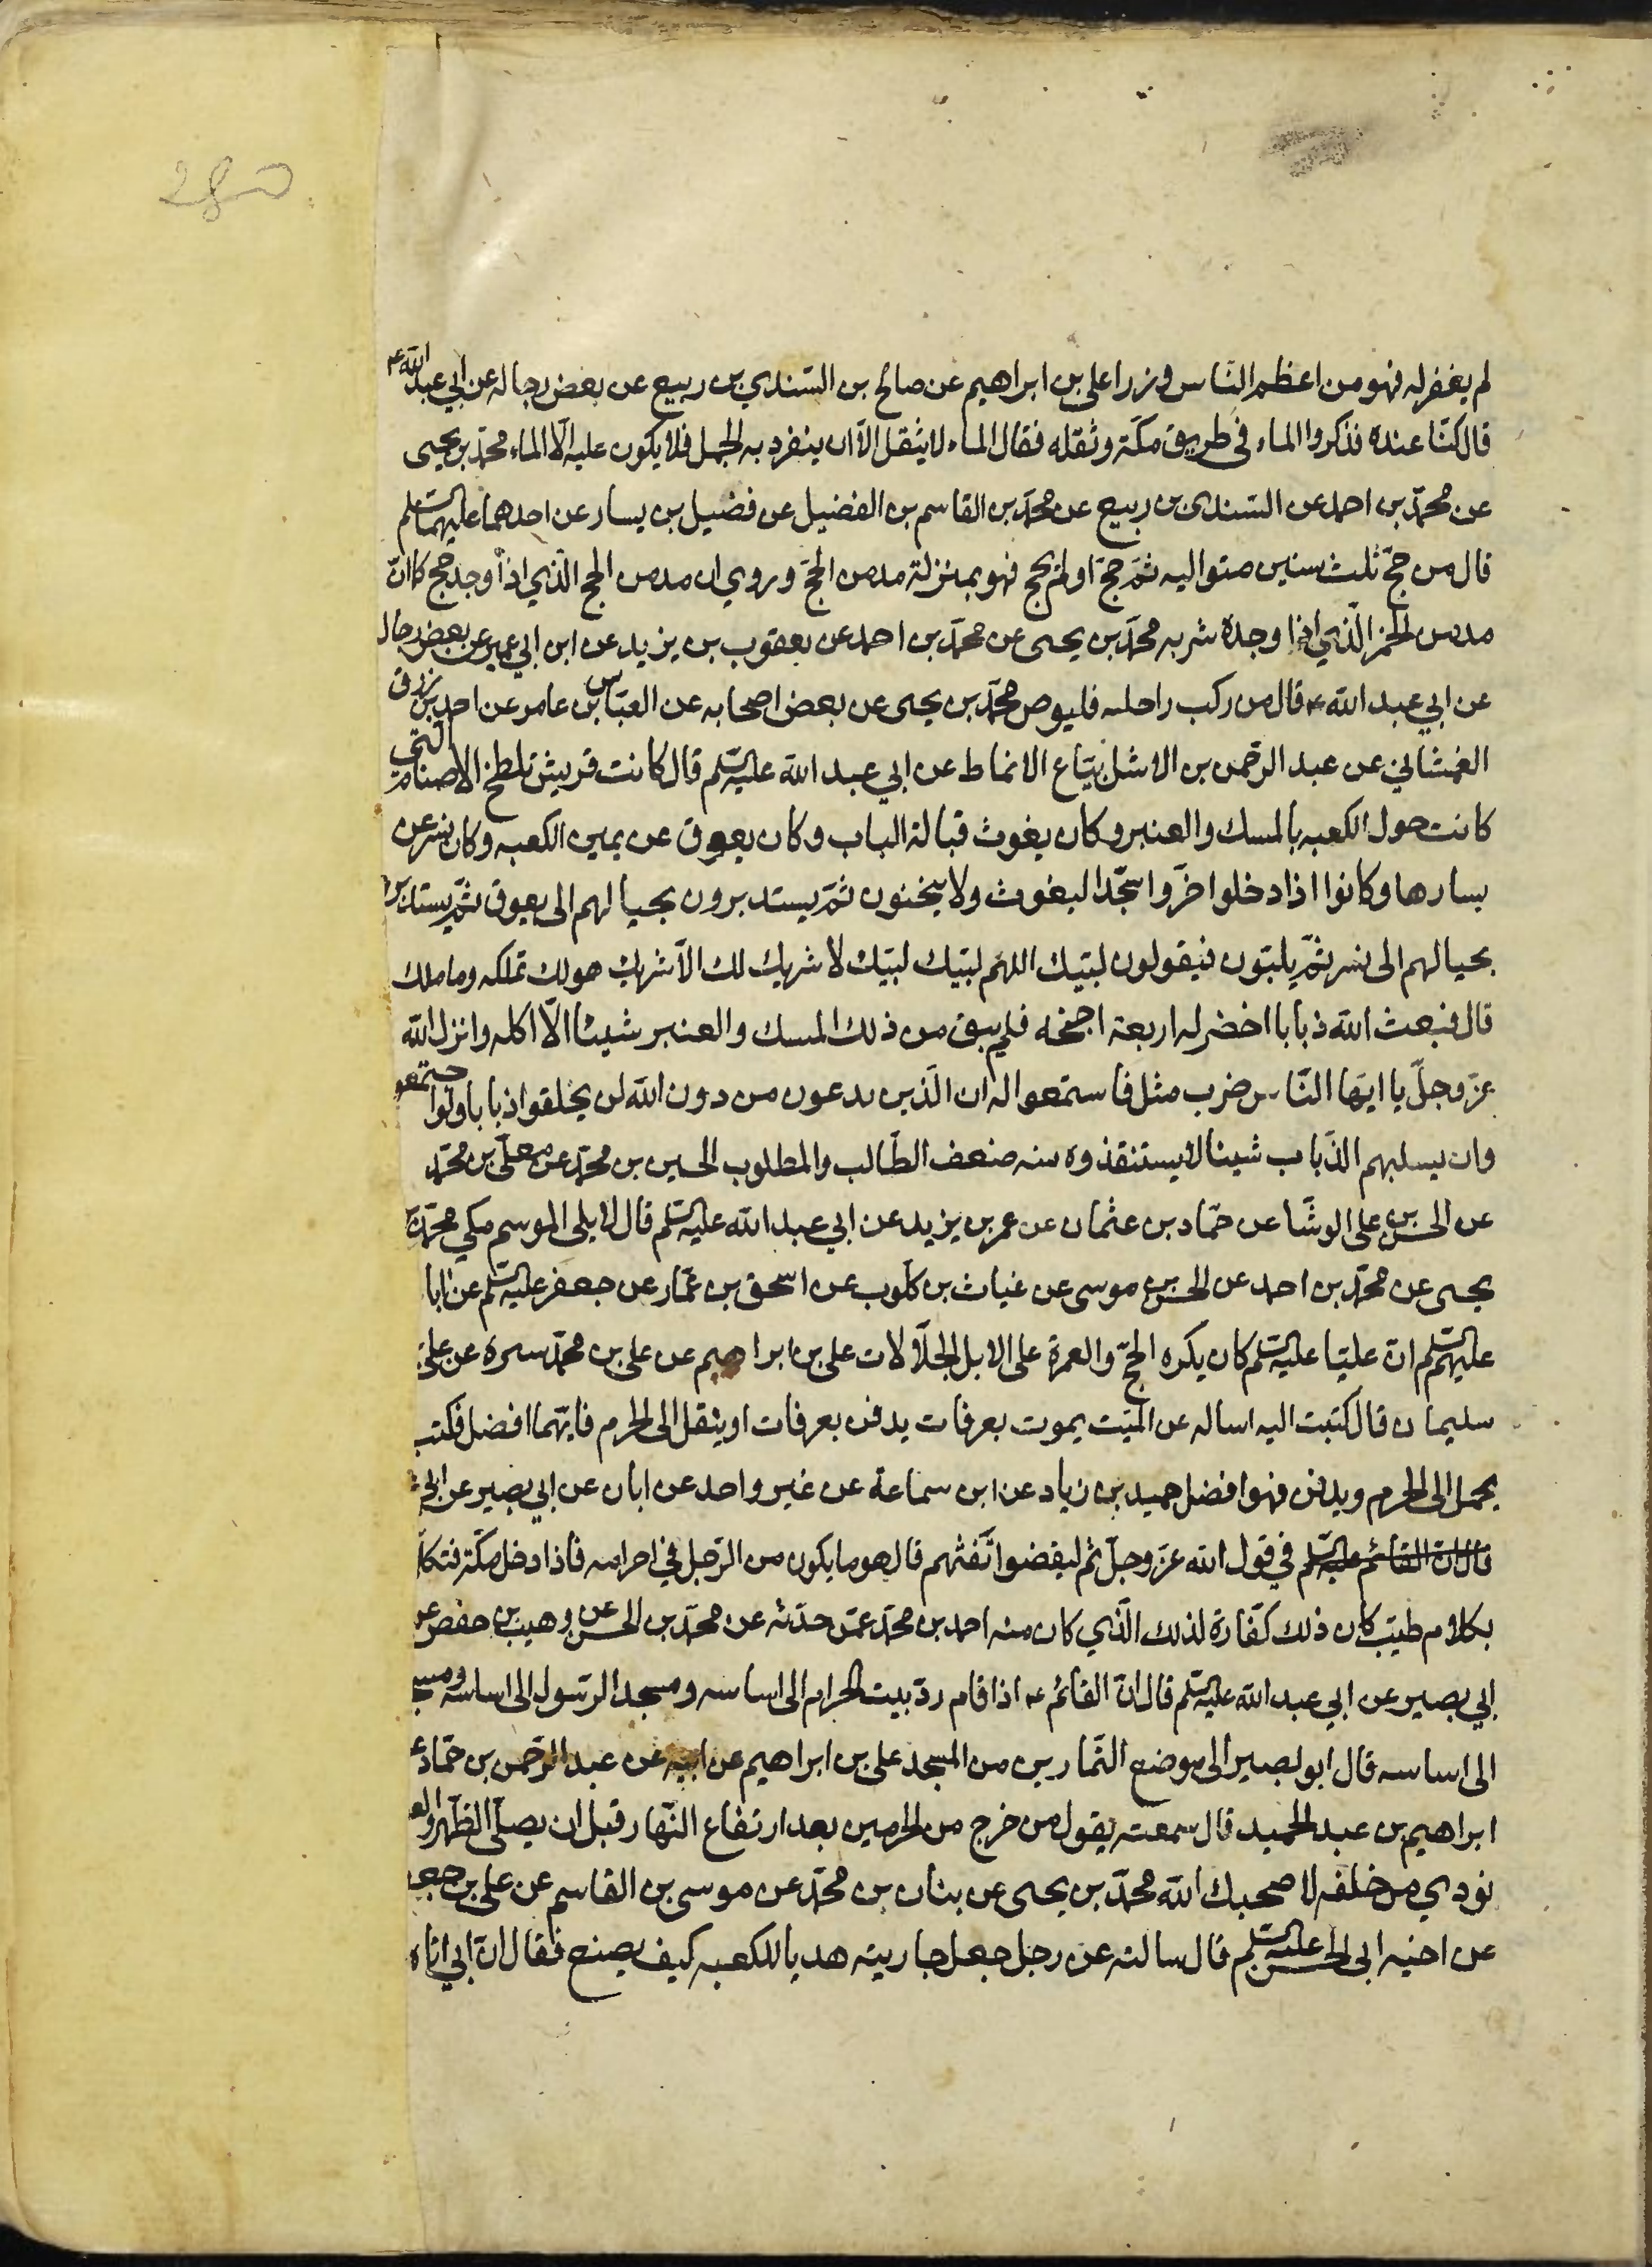 280
لم يغفر له فهو من اعظم الناس وزرا على بن ابراهيم عن صالح بن السندي بن ربيع عن بعض رجاله عن ابي عبد الله ع
قال كنّا عنده فذكروا الماء فى طريق مكّة وثقله فقال الماء لا يثقل الّا ان ينفرد به الجمل فلا يكون عليه الّا الماء محمّد بن يحيى
عن محمّد بن احمد عن السّندى بن ربيع عن محمّد بن القاسم بن الفضيل عن فضيل بن يسار عن احدهما عليهما السلم
قال من حجّ ثلث سنين متواليه ثمّ حجّ او لم يحج فهو بمنزلة مدمن الحجّ وروي ان مدمن الحج الّذي اذا وجد حج كا انّ
مدمن الخمر الّذي اذا وجده شربه محمّد بن يحيى عن محمّد بن احمد عن يعقوب بن يزيد عن ابن ابي عمير عن بعض رجاله
عن ابي عبد الله ع قال من ركب راحله فليوص محمّد بن يحيى عن بعض اصحابه عن العبّاس بن عامر عن احمد بن رزق
الغمشاني عن عبد الرّحمن بن الاشل بيّاع الانماط عن ابي عبد الله عليه السّلم قال كانت قريش تلطخ الاصنام التى
كانت حول الكعبه بالمسك والعنبر وكان يغوث قبالة الباب وكان يعوق عن يمين الكعبه وكان نسر عن
يسارها وكانوا اذا دخلوا خرّوا سجّدا ليغوث ولا ينحنون ثمّ يستديرون بحيالهم الى يعوق ثمّ يستديرون
بحيالهم الى نسر ثمّ يلبّون فيقولون لبّيك اللهمّ لبّيك لبّيك لا شريك لك الّا شريك هو لك تملكه وما ملك
قال فبعث الله ذبابا اخضر له اربعة اجنحه فلم يبق من ذلك المسك والعنبر شيئا الّا اكله وانزل الله
عزّ وجلّ يا ايّها النّاس ضرب مثل فاستمعوا له ان الّذين يدعون من دون الله لن يخلقوا ذبابا ولو اجتمعوا
وان يسلبهم الذّباب شيئا لا يستنقذوه منه ضعف الطّالب والمطلوب الحسين بن محمّد عن معلّى بن محمّد
عن الحسن بن على الوشّا عن حمّاد بن عثمان عن عمر بن يزيد عن ابي عبد الله عليه السّلم قال لا يلى الموسم مكي محمّد بن
يحيى عن محمّد بن احمد عن الحسن بن موسى عن غياث بن كلوب عن اسحق بن عمّار عن جعفر عليه السّلم عن ابا
عليهم السّلم انّ عليّا عليه السّلم كان يكره الحجّ والعمرة على الابل الجلّالات على بن ابراهيم عن على بن محمّد سره عن على
سليمان قال كتبت اليه اساله عن الميّت يموت بعرفات يدفن بعرفات او ينقل الى الحرم فايّهما افضل فكتب
يحمل الى الحرم ويدفن فهو افضل حميد بن زياد عن ابن سماعة عن غير واحد عن ابان عن ابي بصير عن ابي
قال انّ القائم عليه السّلم في قول الله عزّ وجلّ ثم ليقضوا تفثهم قال هو ما يكون من الرّجل في احرامه فاذا دخل مكّة فتكلّ
بكلام طيّب كان ذلك كفّارة لذلك الّذي كان منه احمد بن محمّد عمّن حدّثه عن محمّد بن الحسن عن وهيب بن حفص عن
ابي بصير عن ابي عبد الله عليه السّلم قال انّ القائم ع اذا قام ردّ بيت الحرام الى اساسه ومسجد الرّسول الى اساسه ومسج
الى اساسه قال ابو بصير الى موضع التّمارين من المسجد على بن ابراهيم عن ابيه عن عبد الرّحمن بن حمّاد ع
ابراهيم بن عبد الحميد قال سمعته يقول من خرج من الحرمين بعد ارتفاع النّهار قبل ان يصلّى الظّهر والع
نودي من خلفه لا صحبك الله محمّد بن يحيى عن بنان بن محمّد عن موسى بن القاسم عن على بن جعف
عن اخيه ابى الحسن عليه السّلم قال سالته عن رجل جعل جاريته هديا للكعبه كيف يصنع فقال انّ ابي اتاه